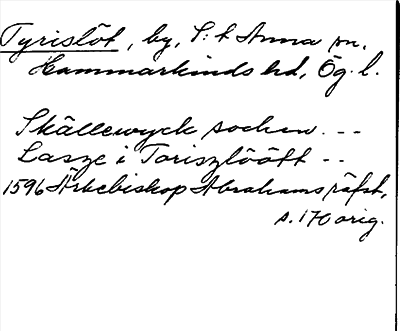 Tyrislöt, by, S:t Anna sn,
Hammarkinds hd, Ög.l.
Skällewyck sochn. ---
Lasze i Toriszlöött --
1596 Ärkebiskop Abrahams räfst,
s. 170 orig.